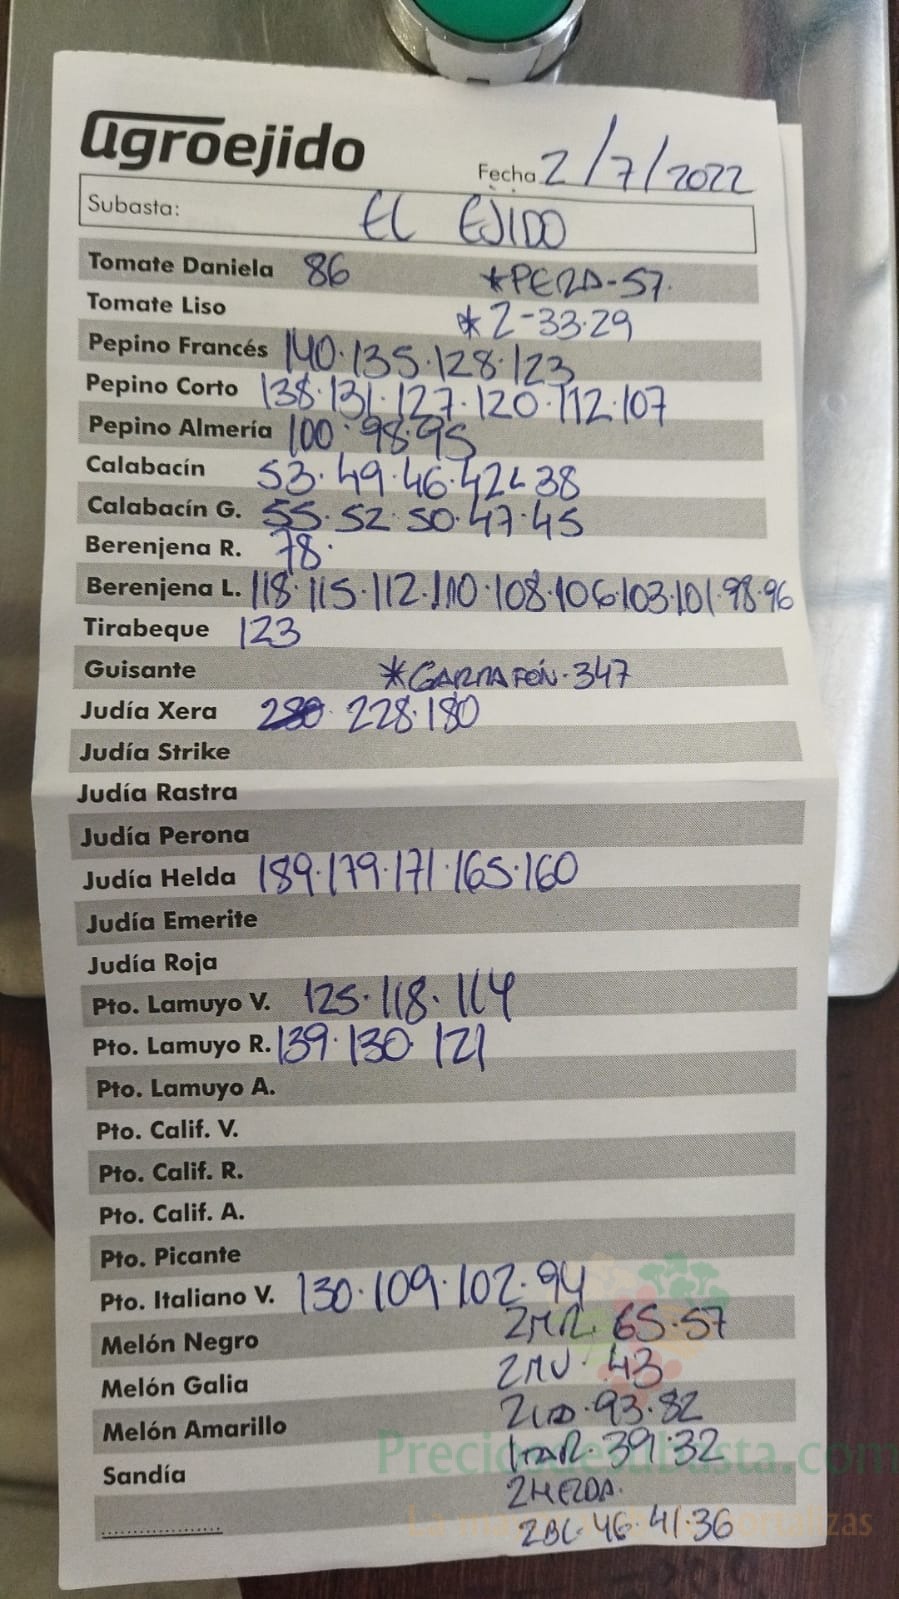 agroejido
Fecha 2/7/2022
Subasta: EL EJIDO
Tomate Daniela 86 *PERA-57.
Tomate Liso *2-33.29
Pepino Francés 140.135.128.123
Pepino Corto 138.131.127.120.112.107
Pepino Almería 100.98.95
Calabacín 53.49.46.42 38
Calabacín G. 55.52.50.47.45
Berenjena R. 78.
Berenjena L. 118.115.112.110.108.106.103.101.98.96
Tirabeque 123
Guisante *GARRAFÓN.347
Judía Xera 228.180
Judía Strike
Judía Rastra
Judía Perona
Judía Helda 189.179.171.165.160
Judía Emerite
Judía Roja
Pto. Lamuyo V. 125.118.114
Pto. Lamuyo R. 139.130.121
Pto. Lamuyo A.
Pto. Calif. V.
Pto. Calif. R.
Pto. Calif. A.
Pto. Picante
Pto. Italiano V. 130.109.102.94
Melón Negro 2MR. 65.57
Melón Galia 2MV. 43
Melón Amarillo .93.82
Sandía 39.32
2HELDA.
2BL.46.41.36
Preciosdesubasta.com